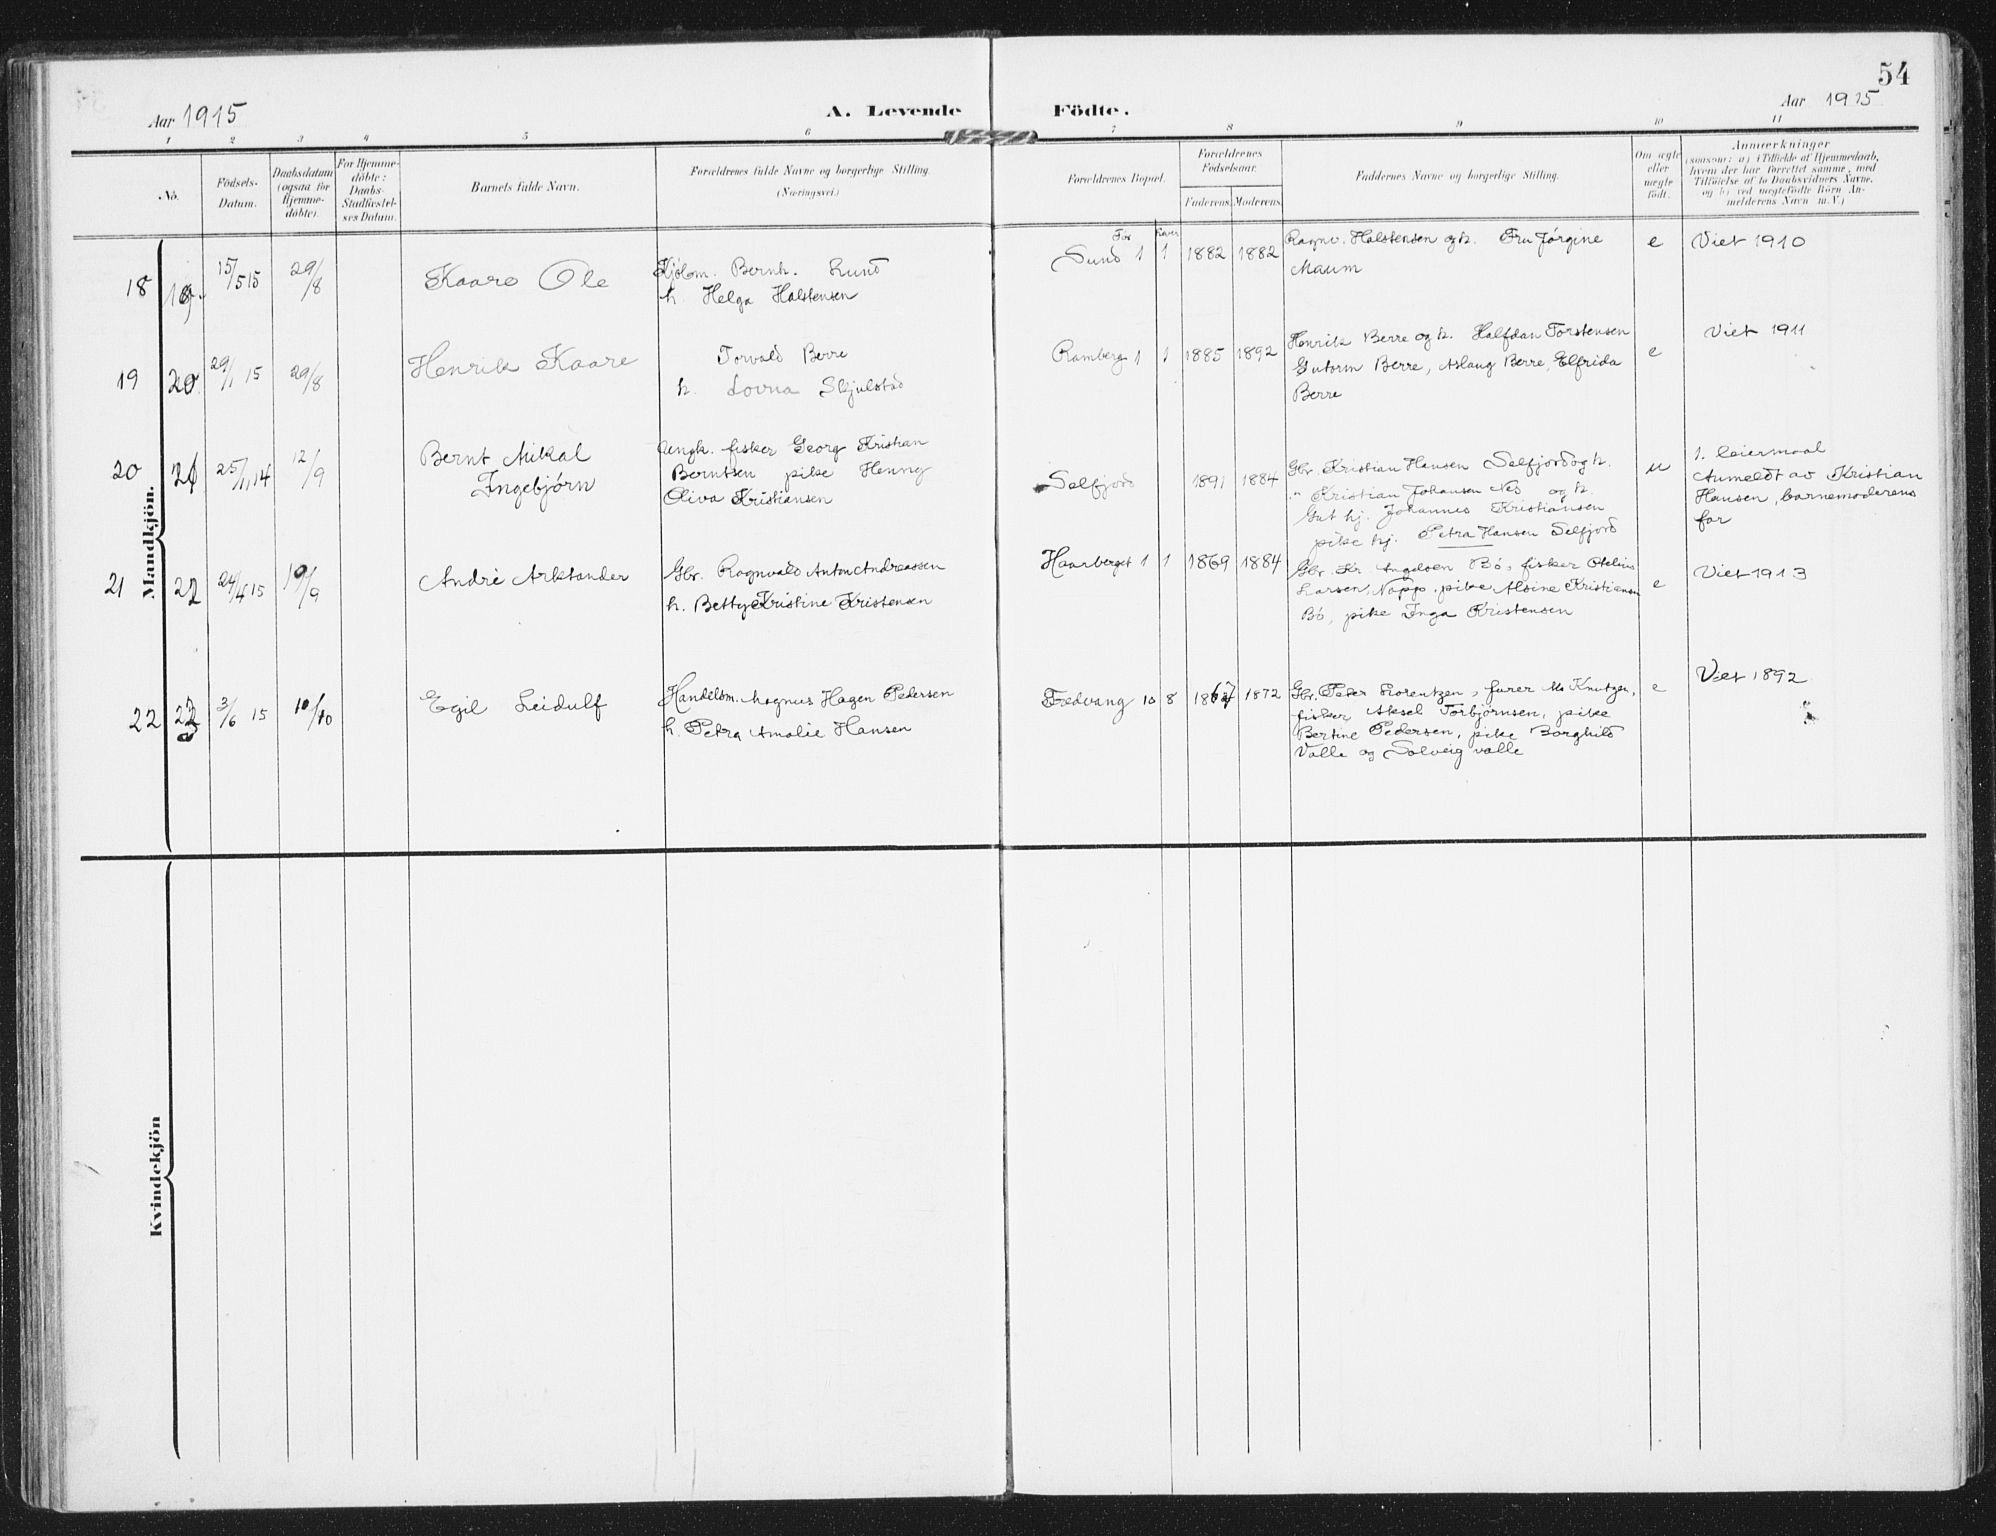 54
Aar 1915
A. Levende Födte.
Aar 1915
1 2 3 4 5 6 7 8 9 10 11
No.
Födsels-Datum.
Daabsdatum (ogsaa for Hjemme-döbte).
For Hjemme-döbte: Daabs-Stadfæstel-ses Datum.
Barnets fulde Navn.
Forældrenes fulde Navne og borgerlige Stilling
(Næringsvei)
Forældrenes Bopæl.
Forældrenes Födselsaar.
Faderens Moderens
Faddernes Navne og borgerlige Stilling.
Om ægte eller uægte födt.
Anmærkninger
(saasom: a) i Tilfælde af Hjemmedaab,
hvem der har forrettet samme, med
Tilföielse af to Daabsvidners Navne,
og b) ved uægtefödte Börn An-
melderens Navn m.V.)
Mandkjön.
18 19 15/5 15 29/8 Kaare Ole
Kjøbm. Bernh. Lund
h. Helga Halstensen
Sund 1 1 1882 1882
Ragnv. Halstensen og h. Fru Jørgine
Maum
e Viet 1910
19 20 29/1 15 29/8 Henrik Kaare
Torvald Berre
h. Lovna Skjulstad
Ramberg 1 1 1885 1892
Henrik Berre og h. Halfdan Torstensen
Gutorm Berre, Aslaug Berre, Elfrida
Berre
e Viet 1911
20 21 25/11 14 12/9 Bernt Mikal
Ingebjørn
Ungk. fisker Georg Kristian
Berntsen pike Henny
Oliva Kristiansen
Selfjord 1891 1884
Gbr. Kristian Hansen Selfjord og h.
" Kristian Johansen Nes og h.
Gut hj. Johannes Kristiansen
pike hj. Petra Hansen Selfjord
u 1. leiermaal
Anmeldt av Kristian
Hansen, barnemoderens
far
21 22 24/4 15 19/9 André Arktander
Gbr. Ragnvald Anton Andreassen
h. Betty Kristine Kristensen
Haarberget 1 1 1869 1884
Gbr. Kr. Angelsen Bø, fisker
Larsen, Napp, pike Alsine Kristiansen
Bø, pike Inga Kristensen
e Viet 1913
22 23 3/6 15 10/10 Egil Leidulf
Handelsm. Magnus Hagen Pedersen
h. Petra Amalie Hansen
Fredvang 10 8 1867 1872
Gbr. Peder Lorentzen, furer M. Knutzen,
fisker Aksel Torbjørnsen, pike
Bertine Pedersen, pike Borghild
Valle og Solveig Valle
e Viet 1892
Kvindekjön